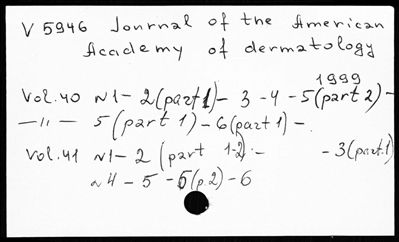 V 5946 Journal of the American
Academy of dermatology
1999
Vol. 40 N1 - 2(part 1) - 3 - 4 - 5(part 2) -
—11— 5(part 1) - 6(part 1) -.
Vol. 41 N1 - 2 (part 1-2) - - 3(part.1)
N4 - 5 - 5(p.2) - 6